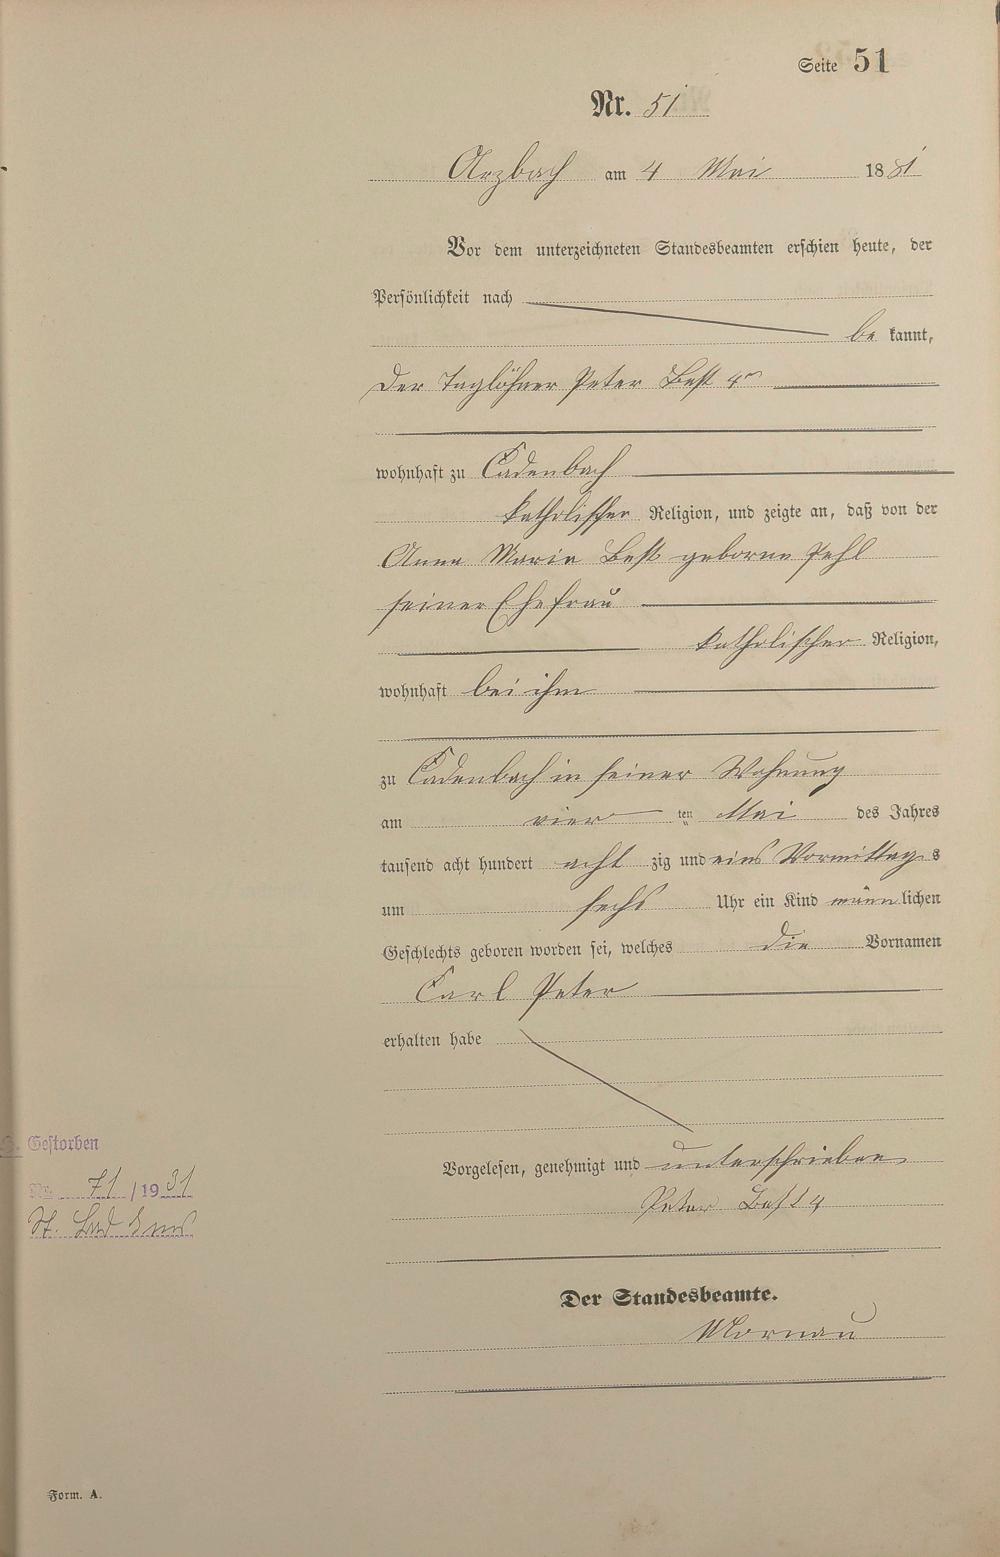 Seite 51
Nr. 51
Arzbach am 4 Mai 1881
Vor dem unterzeichneten Standesbeamten erschien heute, der
Persönlichkeit nach
be kannt,
der Taglöhner Peter Best 4r
wohnhaft zu Cadenbach
katholischer Religion, und zeigte an, daß von der
Anna Maria Best geborne Pehl
seiner Ehefrau
katholischer Religion,
wohnhaft bei ihm
zu Cadenbach in seiner Wohnung
am vier ten Mai des Jahres
tausend acht hundert acht zig und eins Vormittags
um sechs Uhr ein Kind männlichen
Geschlechts geboren worden sei, welches die Vornamen
Carl Peter
erhalten habe
Gestorben
Vorgelesen, genehmigt und unterschrieben
Nr. 71/1931
Peter Best 4
St. Bad Ems
Der Standesbeamte.
Form. A.